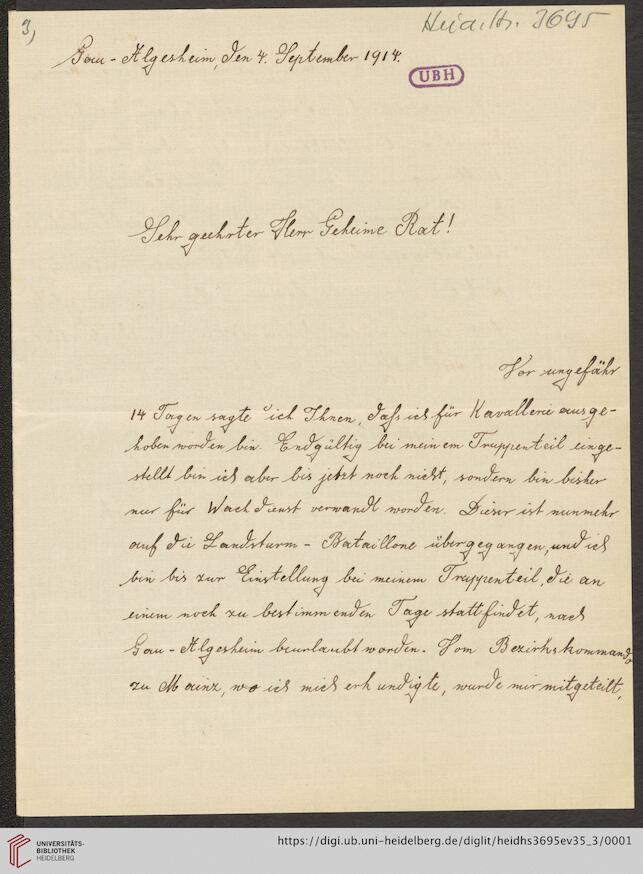 3,
Heid. Hs. 3695
Gau-Algesheim, den 4. September 1914.
UBH
Sehr geehrter Herr Geheime Rat!
Vor ungefähr
14 Tagen sagte ich Ihnen, daſs ich für Kavallerie ausge-
hoben worden bin. Endgültig bei meinem Truppenteil einge-
stellt bin ich aber bis jetzt noch nicht, sondern bin bisher
nur für Wachdienst verwandt worden. Dieser ist nunmehr
auf die Landsturm-Bataillone übergegangen, und ich
bin bis zur Einstellung bei meinem Truppenteil, die an
einem noch zu bestimmenden Tage stattfindet, nach
Gau-Algesheim beurlaubt worden. Vom Bezirkskommando
zu Mainz, wo ich mich erkundigte, wurde mir mitgeteilt,
UNIVERSITÄTS-
BIBLIOTHEK
HEIDELBERG
https://digi.ub.uni-heidelberg.de/diglit/heidhs3695ev35_3/0001